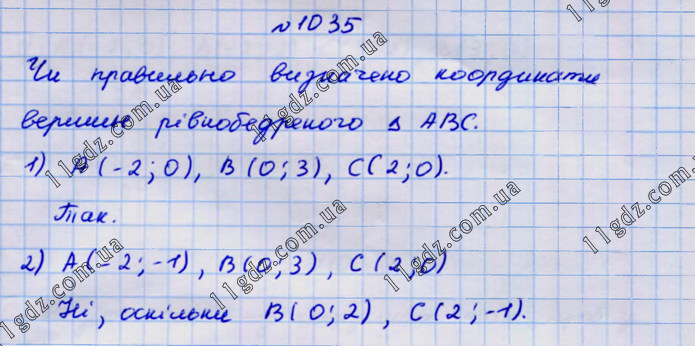 №1035
Чи правильно визначено координати
вершин рівнобедреного Δ ABC.
1) A(-2;0), B(0;3), C(2;0).
Так.
2) A(-2;-1), B(0;3), C(2;0)
Ні, оскільки B(0;2), C(2;-1).
11gdz.com.ua
11gdz.com.ua
11gdz.com.ua
11gdz.com.ua
11gdz.com.ua
11gdz.com.ua
11gdz.com.ua
11gdz.com.ua